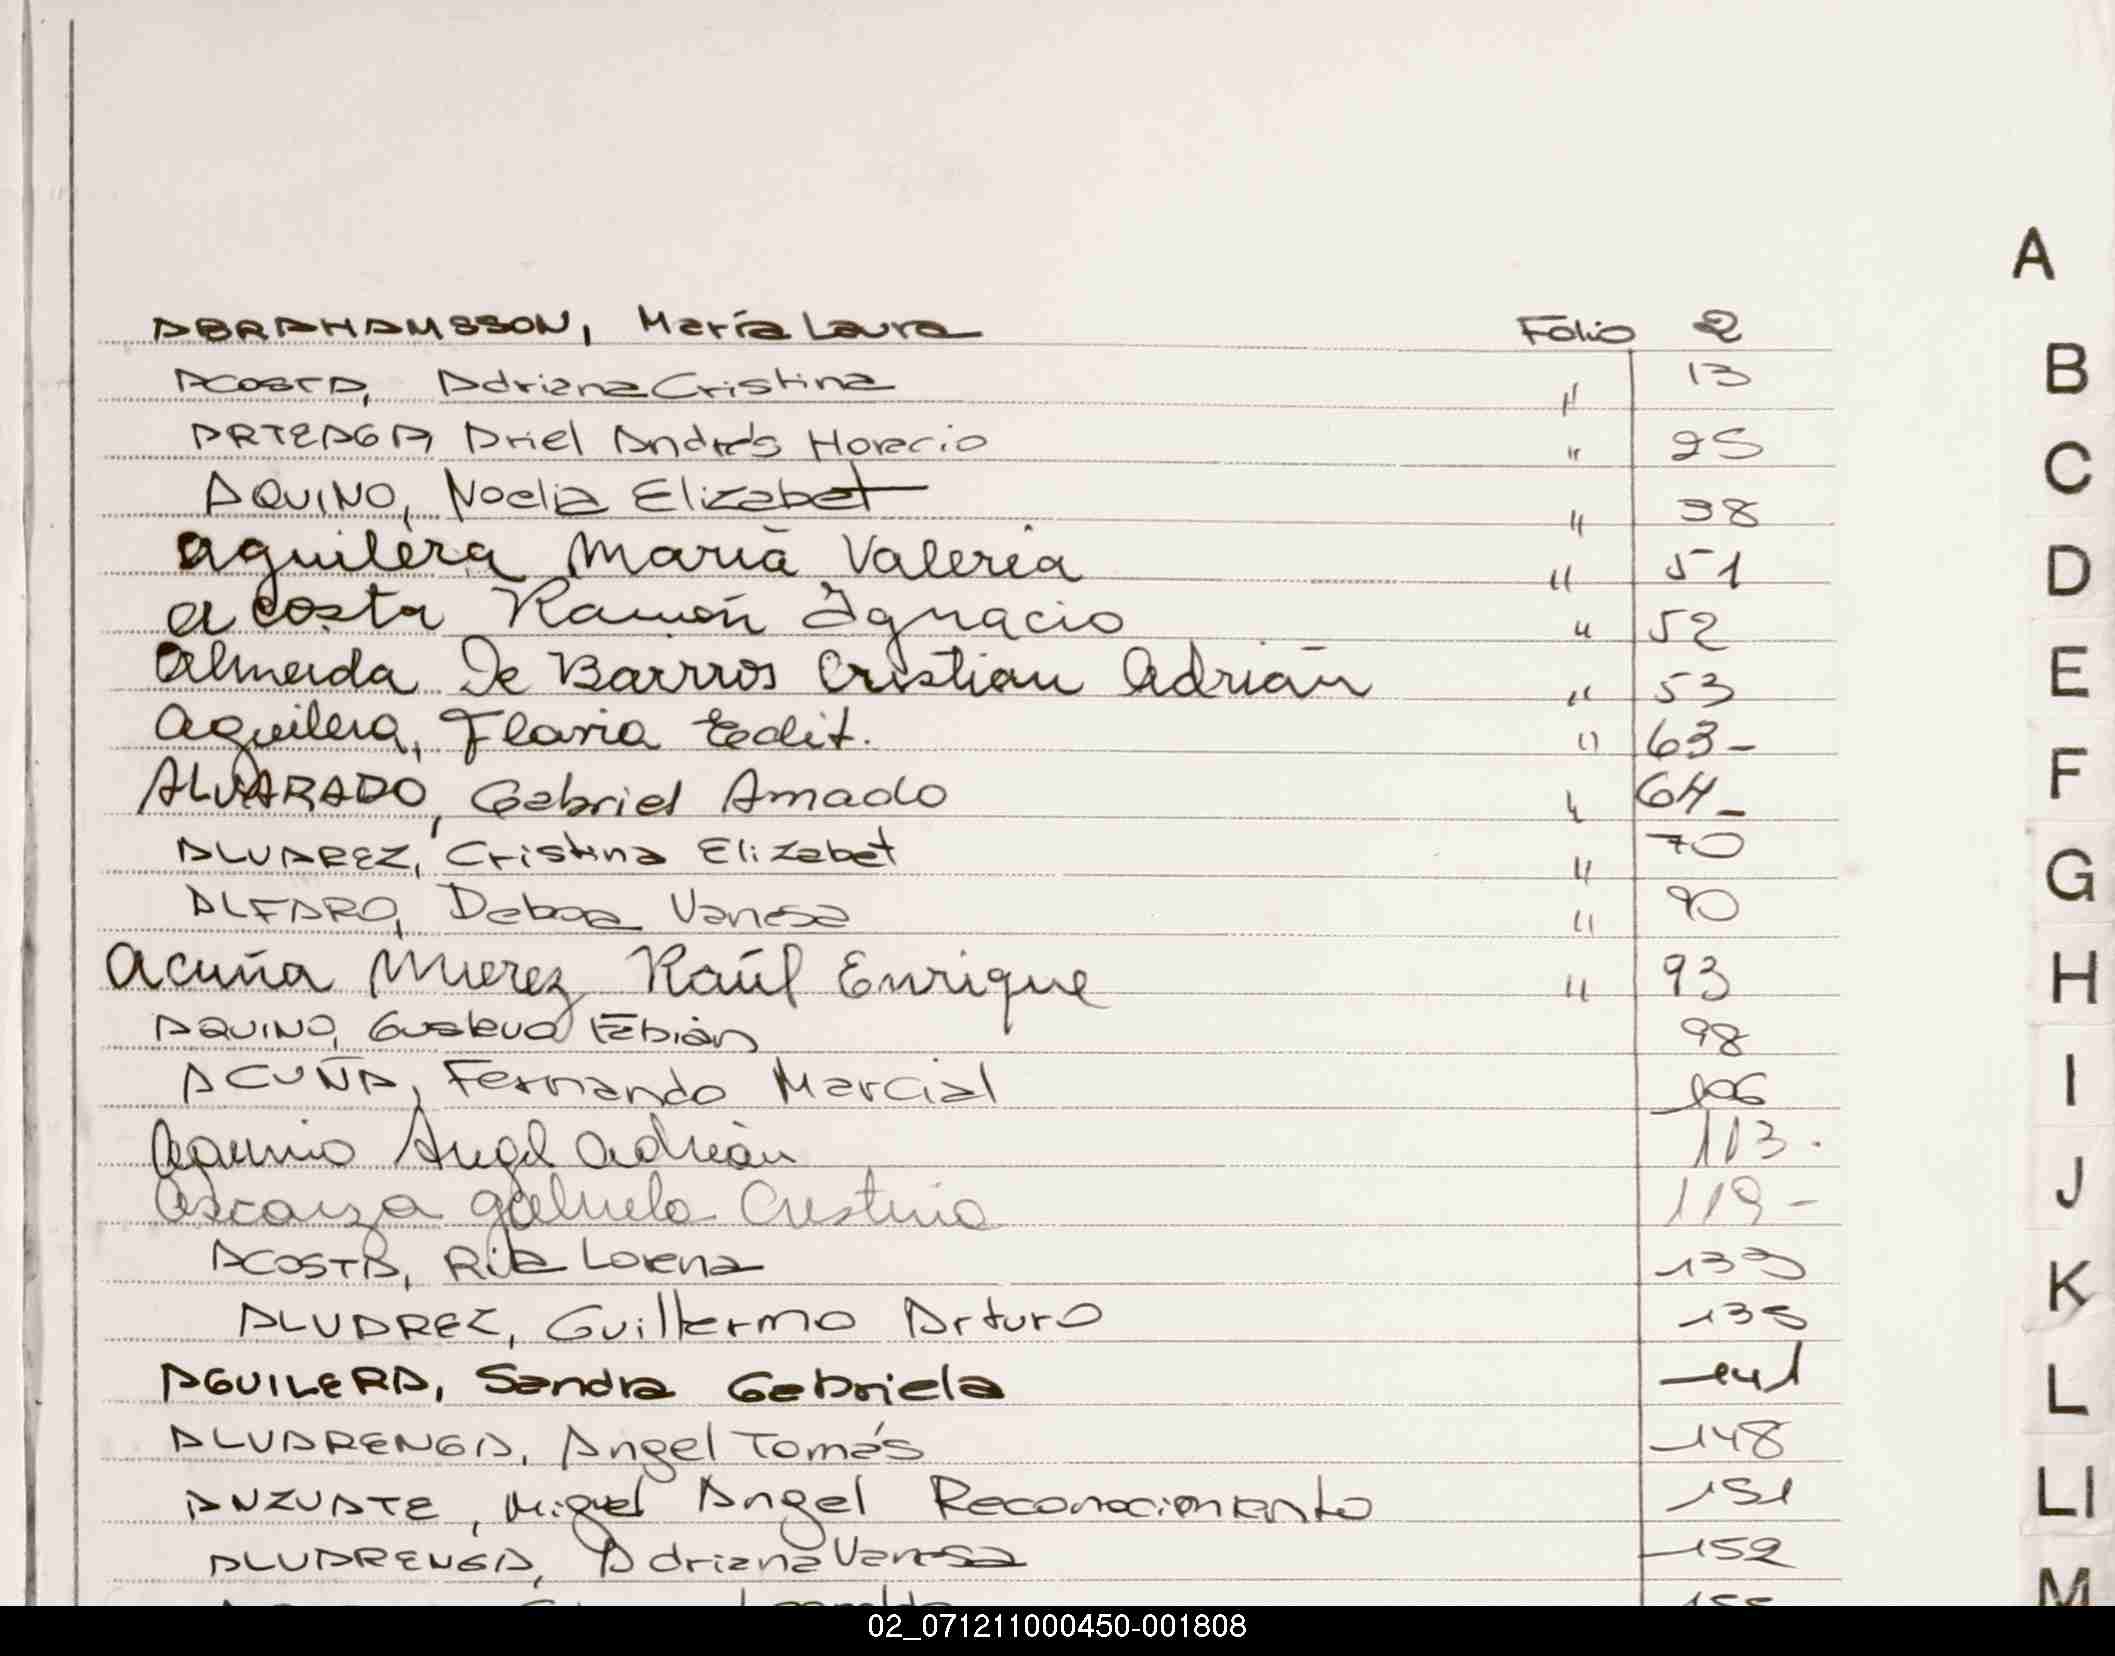 A
ABRAHAMSSON, María Laura Folio 2
B
ACOSTA, Adriana Cristina " 13
ARTEAGA, Ariel Andrés Horacio " 25
C
AQUINO, Noelia Elizabet " 38
Aguilera María Valeria " 51
D
Acosta Ramón Ignacio " 52
E
Almeida De Barrros Cristian Adrián " 53
Aguilera, Flavia Eedit. " 63-
F
ALVARADO, Gabriel Amado " 64-
ALVAREZ, Cristina Elizabet " 70
G
ALFARO, Vanesa " 90
H
Acuña Mierez Raúl Enrique " 93
AQUINO, Gustavo Fabián 98
I
ACUÑA, Fernando Marcial 106
Aquino Angel Adrián 113.
J
Gabriela Cristina 119-
ACOSTA, Rita Lorena 133
K
ALVAREZ, Guillermo Arturo 135
AGUILERA, Sandra Gabriela 141
L
ALVARENGA, Angel Tomás 148
LI
ANZUATE, Miguel Angel Reconocimiento 151
ALVARENGA, Adriana Vanesa 152
M
02_071211000450-001808